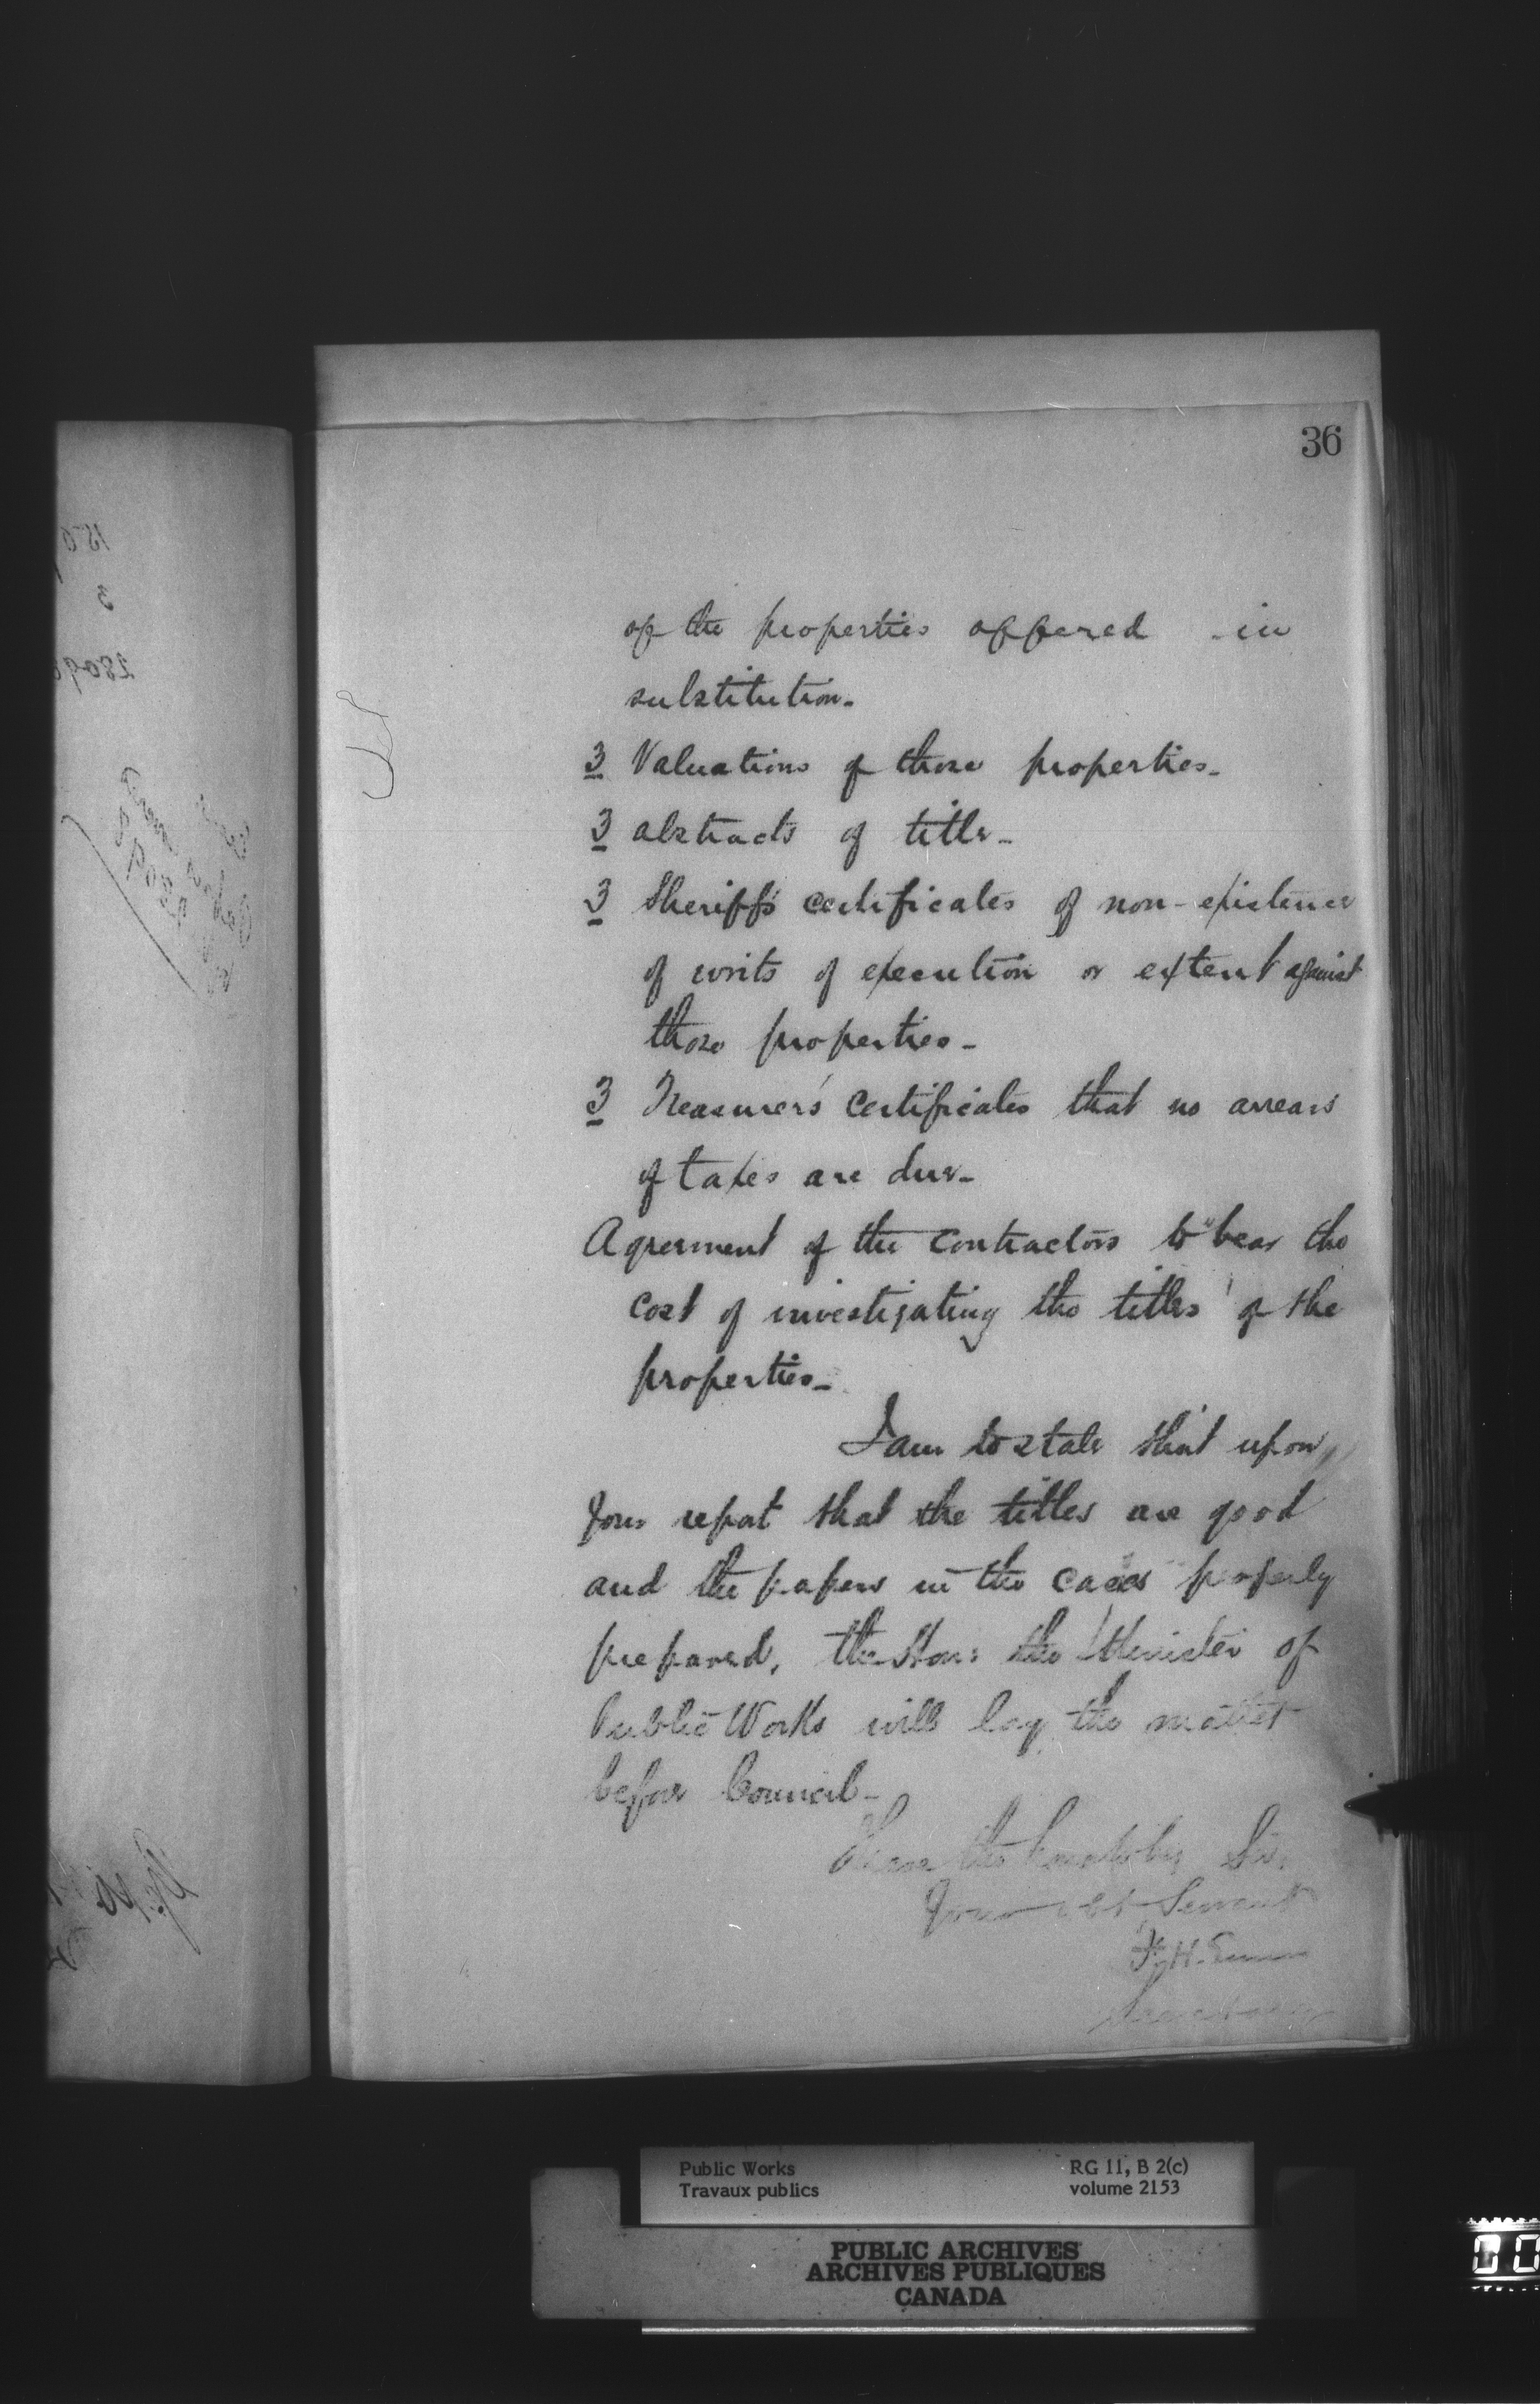 36
of the properties offered in
substitution.
3 Valuations of those properties.
3 abstracts of title.
3 Sheriff's certificates of non-existence
of writs of execution or extent against
those properties.
3 Treasurer's Certificates that no arrears
of taxes are due.
Agreement of the Contractors to bear the
cost of investigating the titles of the
properties.
I am to state that upon
your report that the titles are good
and the papers in the cases properly
prepared, the Hon: the Minister of
Public Works will lay the matter
before Council.
I have the honor to be, Sir,
Your obt Servant
F. H. Ennis
Secretary
Public Works
Travaux publics
RG 11, B 2(c)
volume 2153
PUBLIC ARCHIVES
ARCHIVES PUBLIQUES
CANADA